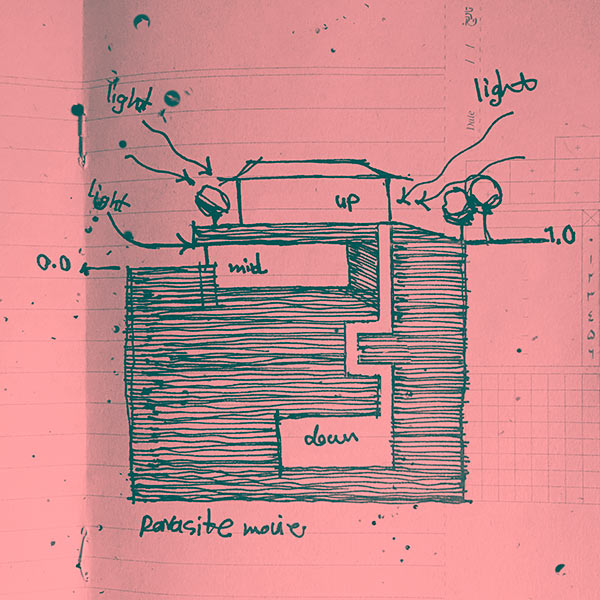 light
light
Date / /
light
up
1.0
0.0
mid
down
Parasite movie